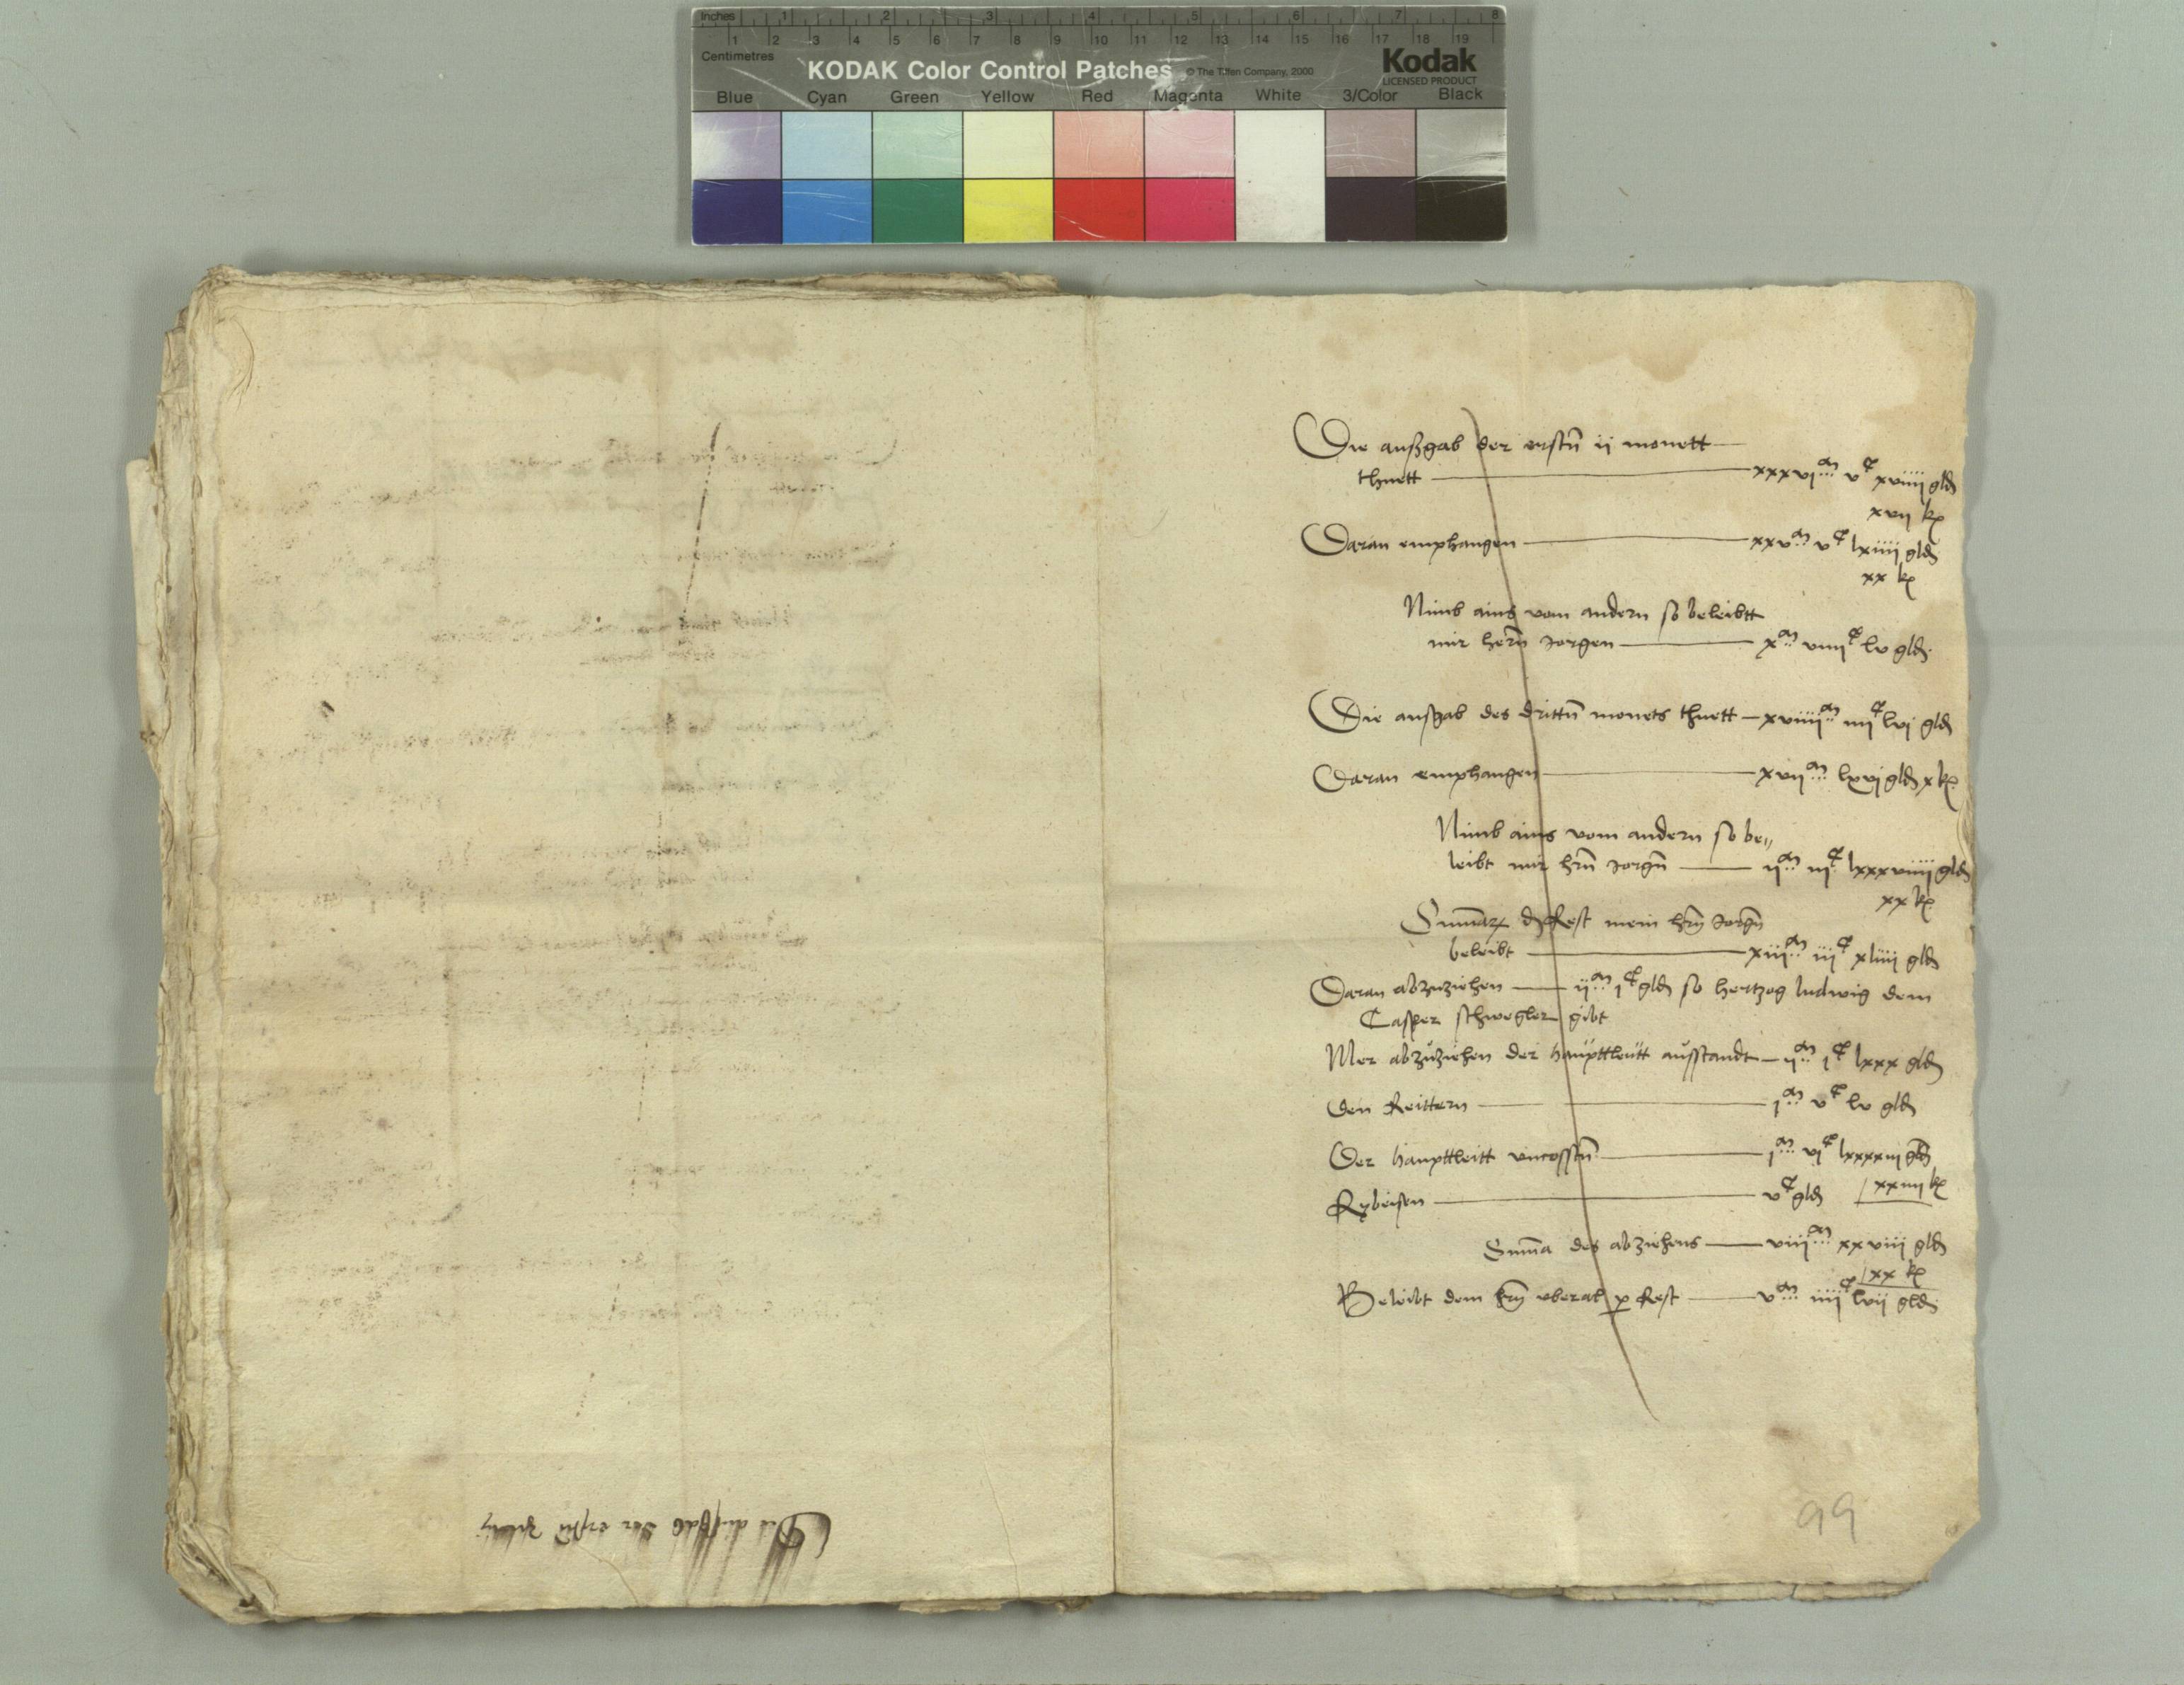 Inches 1 2 3 4 5 6 7 8
1 2 3 4 5 6 7 8 9 10 11 12 13 14 15 16 17 18 19
Centimetres
KODAK Color Control Patches © The Tiffen Company, 2000 Kodak
LICENSED PRODUCT
Blue Cyan Green Yellow Red Magenta White 3/Color Black
Die außgab der erstn̄ ij monett
thuett xxxvjᵐ vᶜ xviiij gld
xvij kr
Daran emphangen xxvᵐ vᶜ lxiiij gld
xx kr
Nimb ains vom andern so beleibtt
mir hern̄ Jorgen xᵐ viiijᶜ lv gld
Die außgab des drittn̄ monets thuett xviiijᵐ iiijᶜ lvj gld
Daran emphangen xvijᵐ lxvj gld x kr
Nimb ains vom andern so be„
leibt mir hrn̄ Jorgn̄ ijᵐ iijᶜ lxxxviiij gld
xx kr
Rest mein hrn̄ Jorgn̄
beleibt xiijᵐ iijᶜ xliiij gld
Daran abzuziehen ijᵐ jᶜ gld so hertzog ludwig dem
Casper schwegler gibt
Mer abzuziehen der haupttleutt ausstandt ijᵐ jᶜ lxxx gld
Den Reittern jᵐ vᶜ lv gld
Der haupttleitt uncosstn̄ jᵐ vjᶜ lxxxxiij gld
xxiiij kr
Rybeisen vᶜ gld
Sum̄a des abziehens viijᵐ xxviij gld
xx kr
Beleibt dem hrn̄ uberal p Rest vᵐ iiijᶜ lvij gld
99
Die außgab der erstn̄